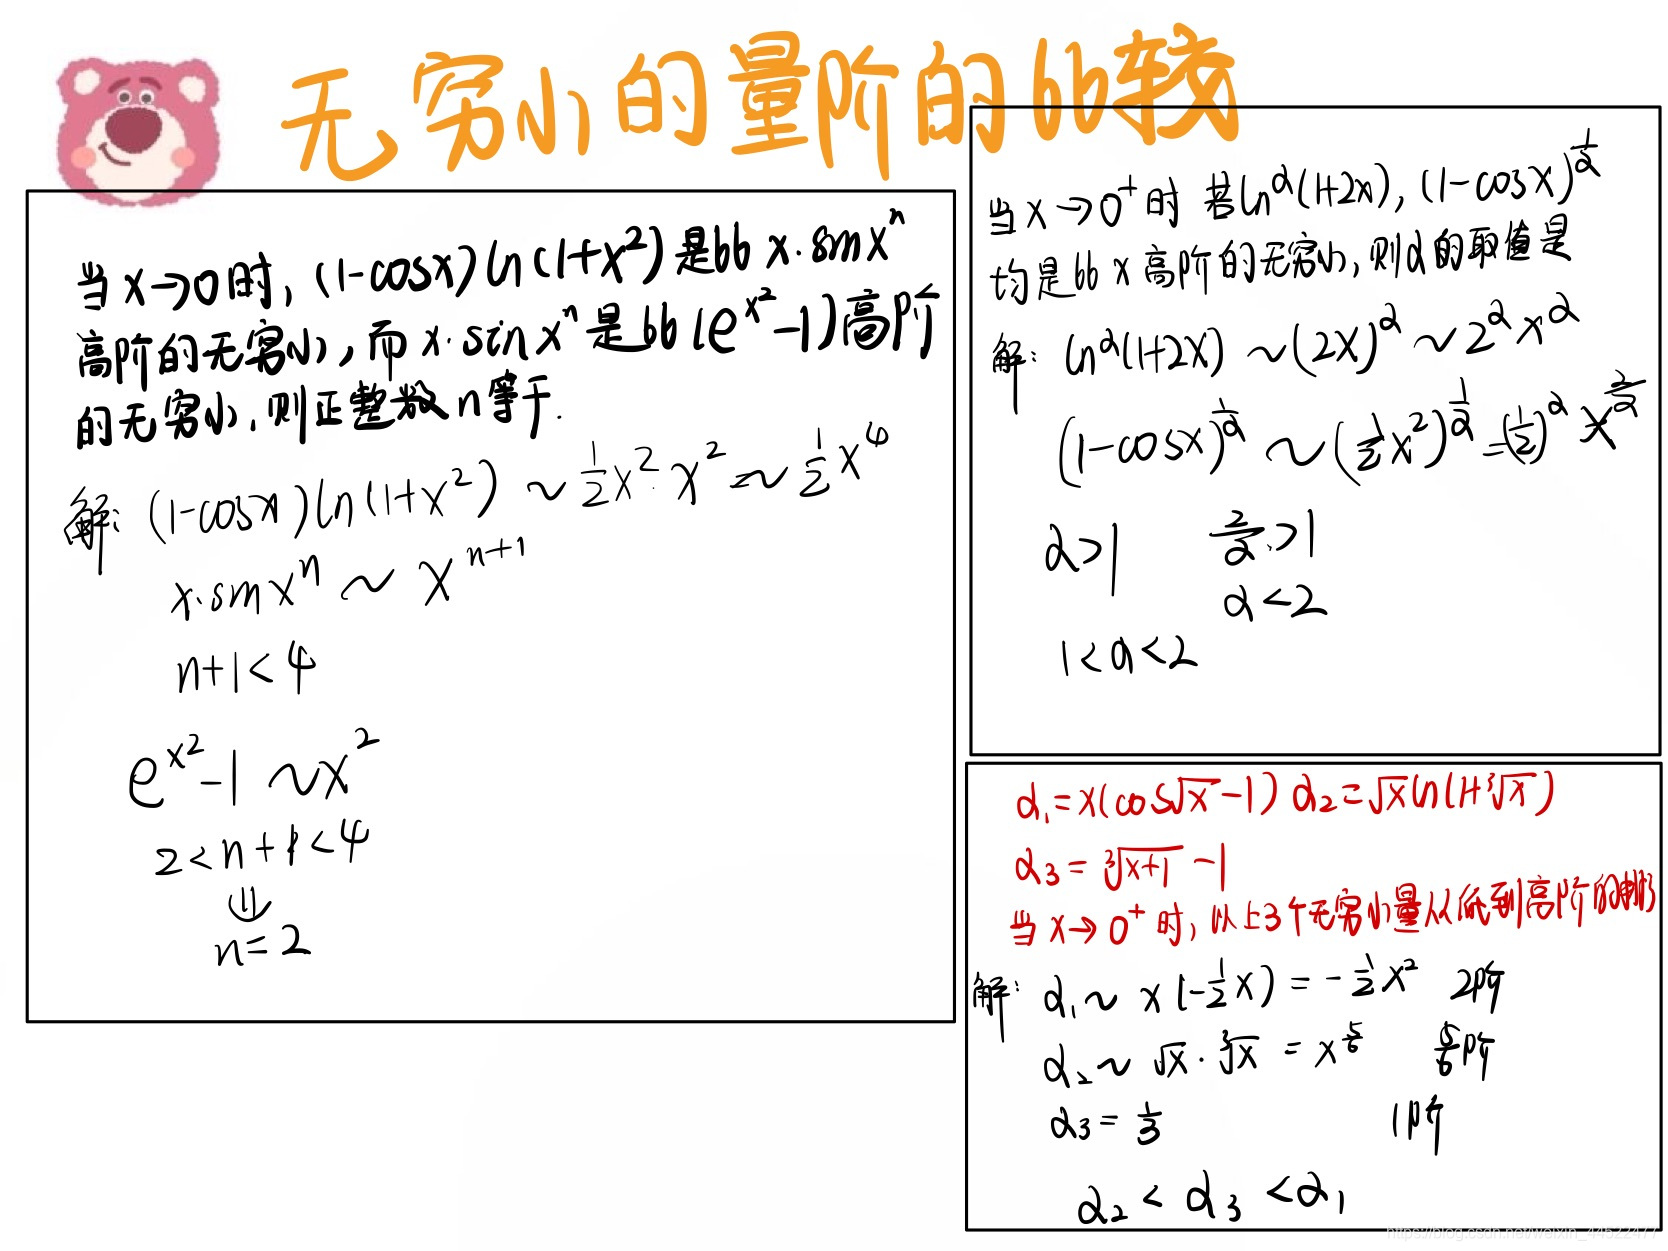 无穷小的量阶的比较
当x→0时，(1-cosx)ln(1+x²)是比x·sinxⁿ
高阶的无穷小，而x·sinxⁿ是比(e^{x²}-1)高阶
的无穷小，则正整数n等于.
解: (1-cosx)ln(1+x²) ~ 1/2x²·x² = ~ 1/2x⁴
x·sinxⁿ ~ x^{n+1}
n+1<4
e^{x²}-1 ~x²
2<n+1<4
⇓
n=2
当x→0⁺时 若ln^α(1+2x), (1-cosx)^{1/α}
均是比x高阶的无穷小，则α的取值是
解: ln^α(1+2x) ~(2x)^α ~2^α x^α
(1-cosx)^{1/α} ~ (1/2x²)^{1/α} = (1/2)^α x^{2/α}
α>1 2/α>1
α<2
1<α<2
α₁=x(cos√x-1) α₂=√x ln(1+∛x)
α₃=∛(x+1) -1
当x→0⁺时，以上3个无穷小量从低到高阶的排
解: α₁~ x(-1/2x) = -1/2x² 2阶
α₂~ √x·∛x = x^{5/6} 5/6阶
α₃= 1/3 1阶
α₂<α₃<α₁
https://blog.csdn.net/weixin_44522477